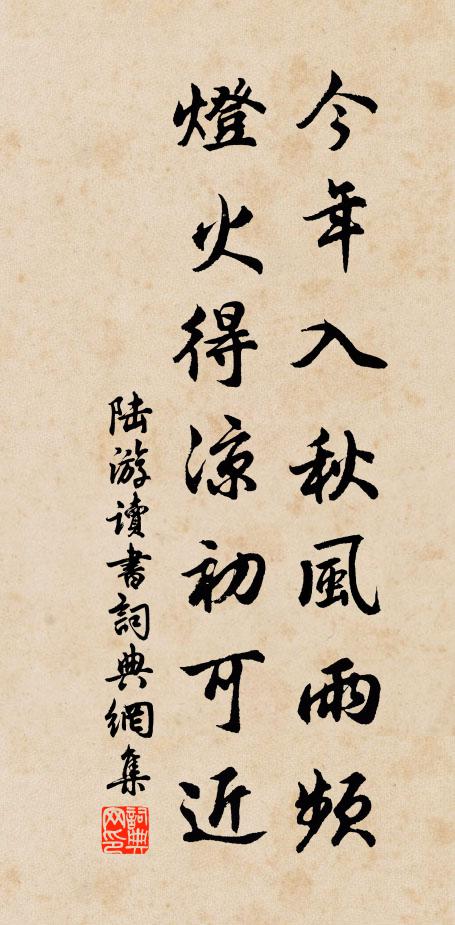 今年入秋風雨頻
燈火得涼初可近
陸游讀書詞典網集
詞典网印